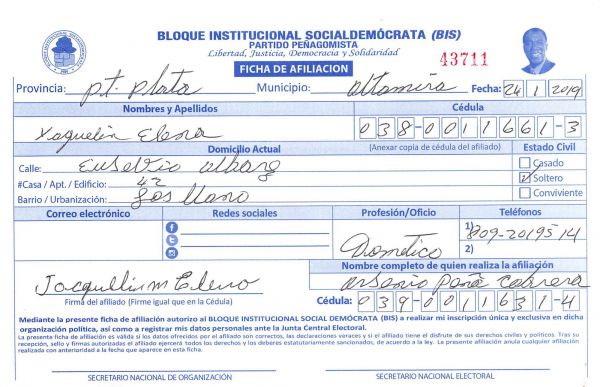 BLOQUE INSTITUCIONAL SOCIALDEMÓCRATA (BIS)
PARTIDO PEÑAGOMISTA
Libertad, Justicia, Democracia y Solidaridad
43711
FICHA DE AFILIACION
Provincia: pt. plata Municipio: altamira Fecha: 24 1 2019
Nombres y Apellidos Cédula
Yaquelin Elena 038-0011661-3
Domicilio Actual (Anexar copia de cédula del afiliado) Estado Civil
Calle: Eusebio Casado
#Casa / Apt. / Edificio: 42 Soltero
Barrio / Urbanización: Los llano Conviviente
Correo electrónico Redes sociales Profesión/Oficio Teléfonos
1) 809-2019514
Dometico 2)
Nombre completo de quien realiza la afiliación
Elena arsenio peña cabrera
Firma del afiliado (Firme igual que en la Cédula) Cédula: 039-0011631-4
Mediante la presente ficha de afiliación autorizo al BLOQUE INSTITUCIONAL SOCIAL DEMÓCRATA (BIS) a realizar mi inscripción única y exclusiva en dicha
organización política, así como a registrar mis datos personales ante la Junta Central Electoral.
La presente ficha de afiliación es válida si los datos ofrecidos por el afiliado son correctos, las declaraciones veraces y si el afiliado tiene el disfrute de sus derechos civiles y políticos. Tras su
recepción, sello y firmas autorizadas el afiliado ejercerá todos los derechos y los deberes estatutariamente sancionados, de acuerdo a la ley. La presente afiliación anula cualquier afiliación
realizada con anterioridad a la fecha que aparece en esta ficha.
SECRETARIO NACIONAL DE ORGANIZACIÓN SECRETARIO NACIONAL ELECTORAL